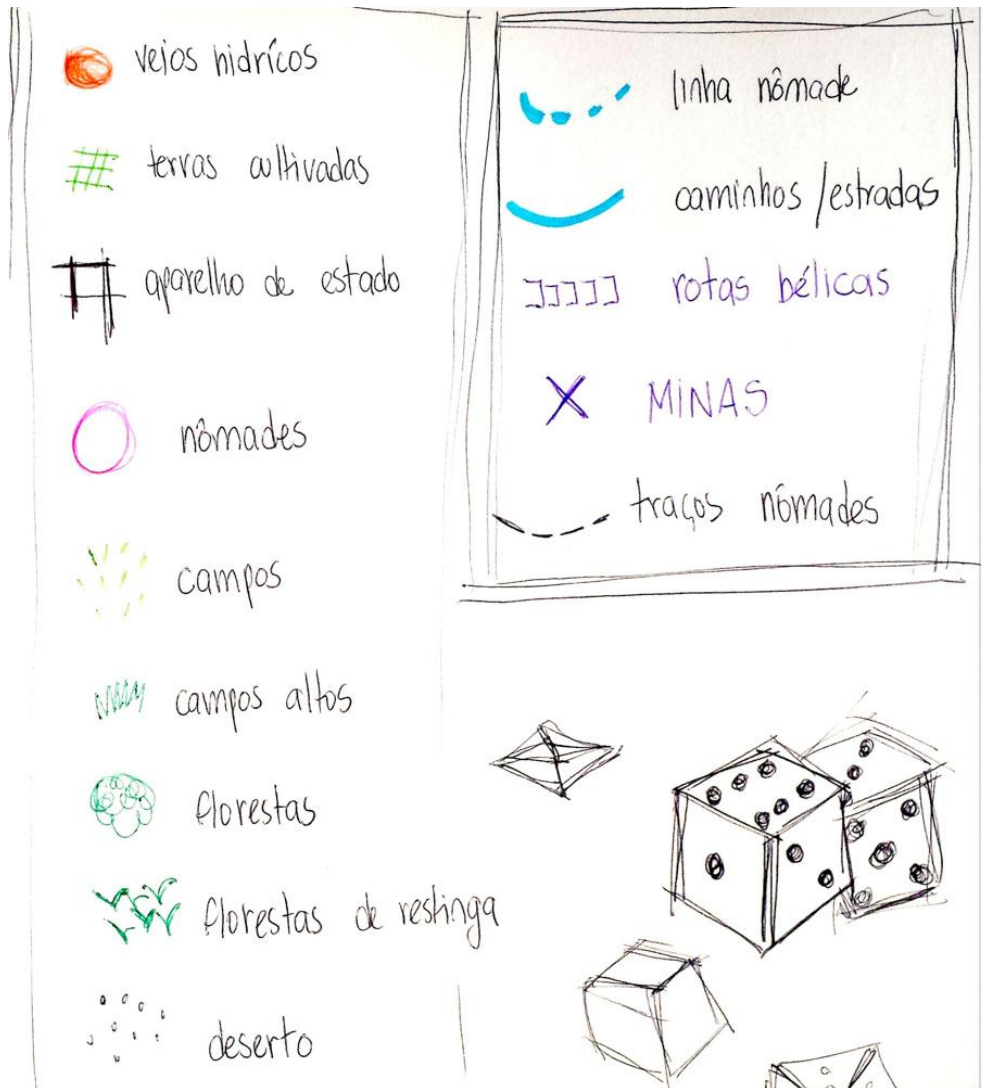 veios hidrícos
terras cultivadas
aparelho de estado
nômades
campos
campos altos
florestas
florestas de restinga
deserto
linha nômade
caminhos/estradas
rotas bélicas
MINAS
traços nômades